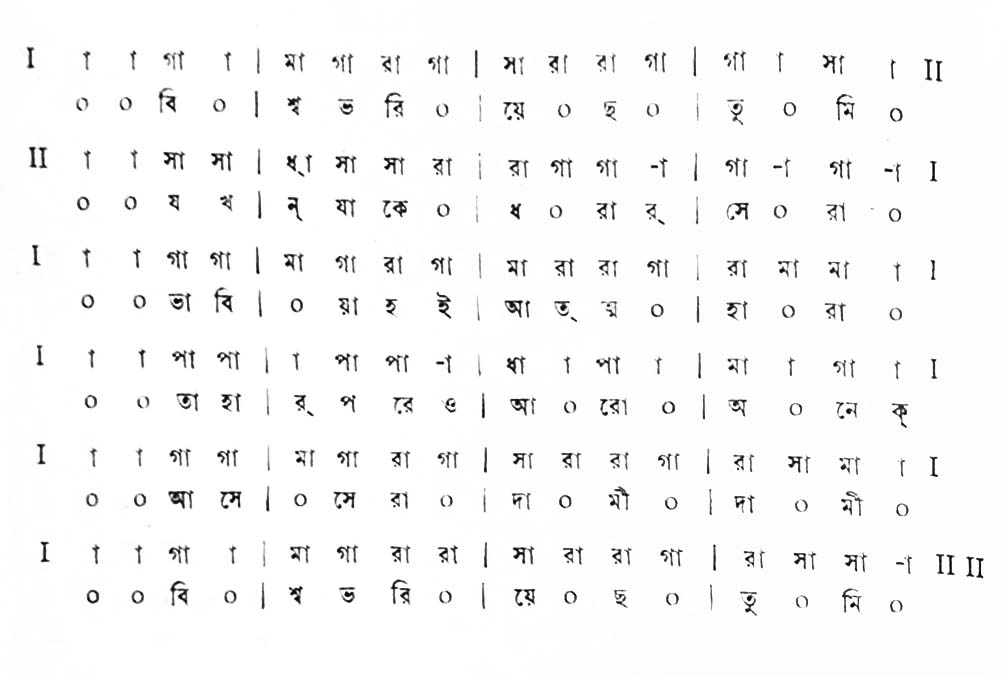 I া া গা া | মা গা রা গা | সা রা রা গা | গা া সা া II
০ ০ বি ০ | শ্ব ভ রি ০ | য়ে ০ ছ ০ | তু ০ মি ০
II া া সা সা | ধ্‌া সা সা রা | রা গা গা -া | গা -া গা -া I
০ ০ য খ | ন্ যা কে ০ | ধ ০ রা র্ | সে ০ রা ০
I া া গা গা | মা গা রা গা | মা রা রা গা | রা মা মা া I
০ ০ ভা বি | ০ য়া হ ই | আ ত্ ম ০ | হা ০ রা ০
I া া পা পা | া পা পা -া | ধা া পা া | মা া গা া I
০ ০ তা হা | র্ প রে ও | আ ০ রো ০ | অ ০ নে ক্
I া া গা গা | মা গা রা গা | সা রা রা গা | রা সা মা া I
০ ০ আ সে | ০ সে রা ০ | দা ০ মী ০ | দা ০ মী ০
I া া গা া | মা গা রা রা | সা রা রা গা | রা সা সা -া II II
০ ০ বি ০ | শ্ব ভ রি ০ | য়ে ০ ছ ০ | তু ০ মি ০